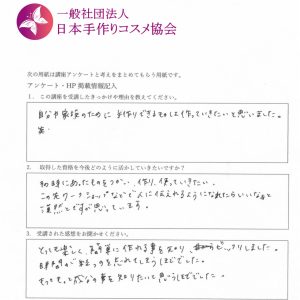 一般社団法人
日本手作りコスメ協会
次の用紙は講座アンケートと考えをまとめてもらう用紙です。
アンケート・HP 掲載情報記入
1. この講座を受講したきっかけや理由を教えてください。
自分や家族のために手作りできるものは作っていきたいと思いました。
2. 取得した資格を今後どのように活かしていきたいですか?
初時にあったものをつかい、作り、使っていきたい。
この先ワークショップなどで人に伝えれるようになれたらいいなぁと
漠然とですが思っています。
3. 受講された感想をお聞かせください。
とっても楽しく、簡単に作れる事を知り、ビックリしました。
時間が経つのを忘れてしまうほどでした。
もっともっと成分の事を知りたいと思うほどでした。